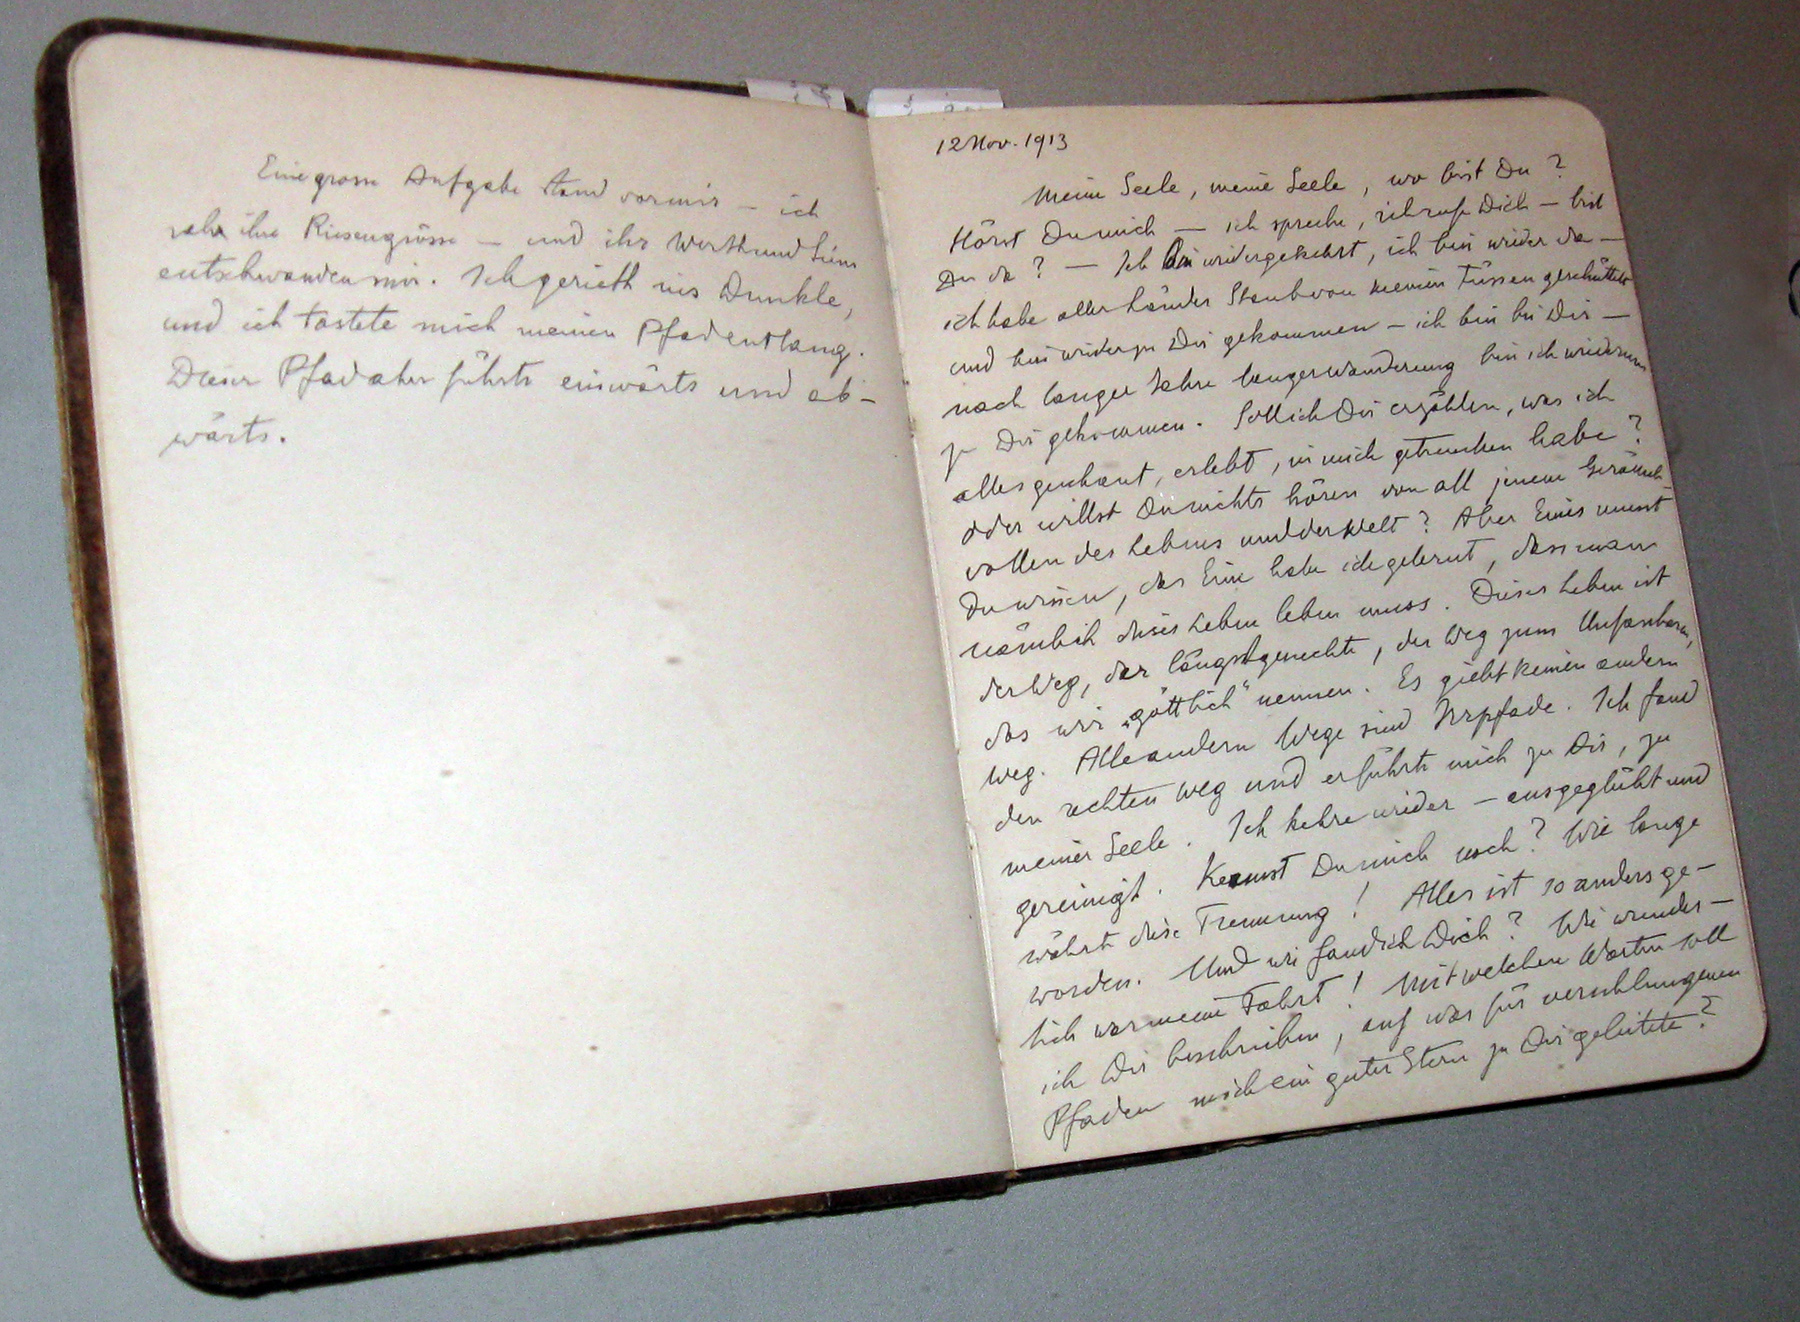 Eine grosse Aufgabe stand vor mir – ich
sah ihre Riesengrösse – und ihr Werth und Sinn
entschwanden mir. Ich gerieth ins Dunkle,
und ich tastete mich meinen Pfad entlang.
Dieser Pfad aber führte einwärts und ab-
wärts.
12 Nov. 1913
Meine Seele, meine Seele, wo bist Du?
Hörst Du mich – ich spreche, ich rufe Dich – bist
Du da? – Ich bin wiedergekehrt, ich bin wieder da –
ich habe aller Länder Staub von meinen Füssen geschüttelt
und bin wieder zu Dir gekommen – ich bin bei Dir –
nach langer Jahre langer Wanderung bin ich wiederum
zu Dir gekommen. Soll ich Dir erzählen, was ich
alles geschaut, erlebt, in mich getrunken habe?
oder willst Du nichts hören von all jenem Geräusch-
vollen des Lebens und der Welt? Aber Eines musst
Du wissen, das Eine habe ich gelernt, dass man
nämlich dieses Leben leben muss. Dieses Leben ist
der Weg, der längst gesuchte, der Weg zum Unfassbaren,
das wir „göttlich“ nennen. Es giebt keinen andern
Weg. Alle andern Wege sind Irrpfade. Ich fand
den rechten Weg und er führte mich zu Dir, zu
meiner Seele. Ich kehre wieder – ausgeglüht und
gereinigt. Kennst Du mich noch? Wie lange
währte diese Trennung! Alles ist so anders ge-
worden. Und wie fand ich Dich? Wie wunder-
lich war meine Fahrt! Mit welchen Worten soll
ich Dir beschreiben, auf was für verschlungenen
Pfaden mich ein guter Stern zu Dir geleitete?